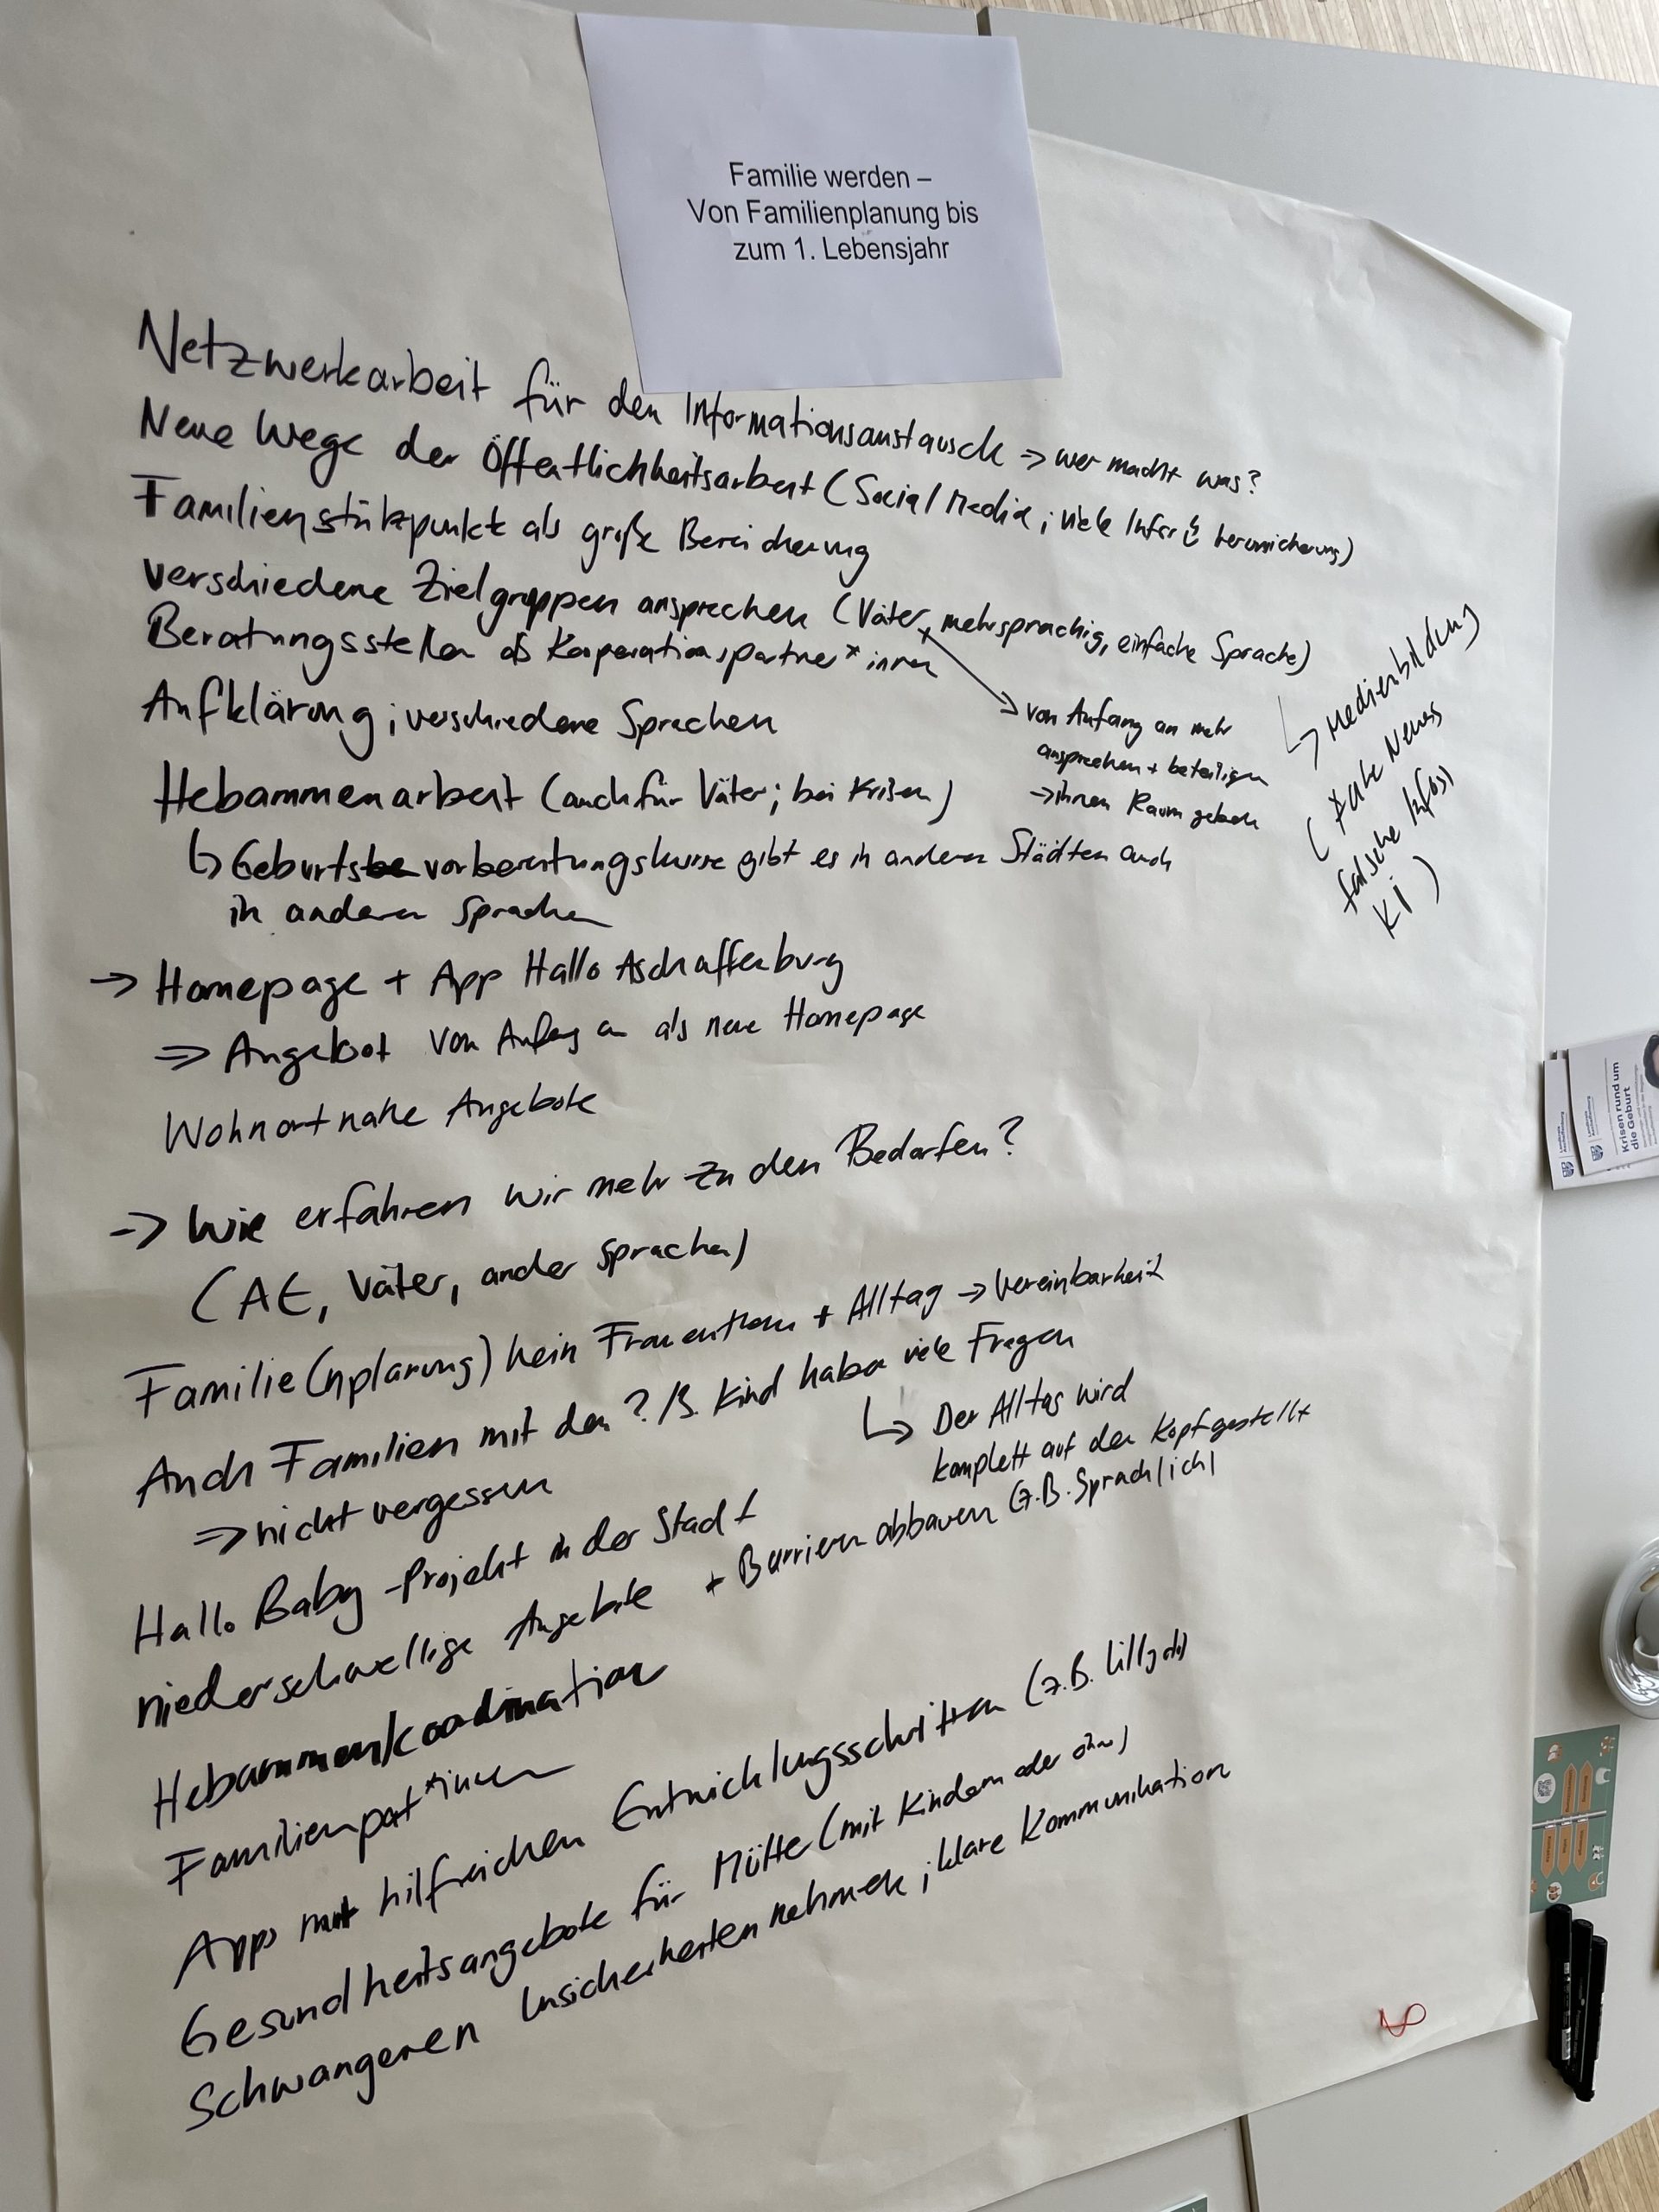 Familie werden –
Von Familienplanung bis
zum 1. Lebensjahr
Netzwerkarbeit für den Informationsaustausch => wer macht was?
Neue Wege der Öffentlichkeitsarbeit (Social Media; viele Infos Verunsicherung)
Familienstützpunkt als große Bereicherung
verschiedene Zielgruppen ansprechen (Väter, mehrsprachig, einfache Sprache)
Beratungsstellen als Kooperationspartner*innen
von Anfang an mehr
ansprechen + beteiligen
-> ihnen Raum geben
Medienbildung
(Fake News
falsche Infos,
Ki)
Aufklärung; verschiedene Sprachen
Hebammenarbeit (auch für Väter; bei Krisen)
Geburtsvorbereitungskurse gibt es in anderen Städten auch
in anderen Sprachen
-> Homepage + App Hallo Aschaffenburg
=> Angebot von Anfang an als neue Homepage
Wohnortnahe Angebote
-> Wie erfahren wir mehr zu den Bedarfen?
(AE, Väter, ander Sprachen)
Familie(nplanung) kein Frauenthema + Alltag -> Vereinbarkeit
Auch Familien mit den 2./3. Kind haben viele Fragen
=> nicht vergessen
Der Alltag wird
komplett auf den Kopf gestellt
Hallo Baby-Projekt in der Stadt
niederschwellige Angebote + Barrieren abbauen (z.B. Sprachlich)
Hebammenkoordination
Familienpat*innen
Apps mit hilfreichen Entwicklungsschritten (z.B.
Gesundheitsangebote für Mütter (mit Kindern oder ohne)
Schwangeren Unsicherheiten nehmen; klare Kommunikation
Krisen rund um
die Geburt